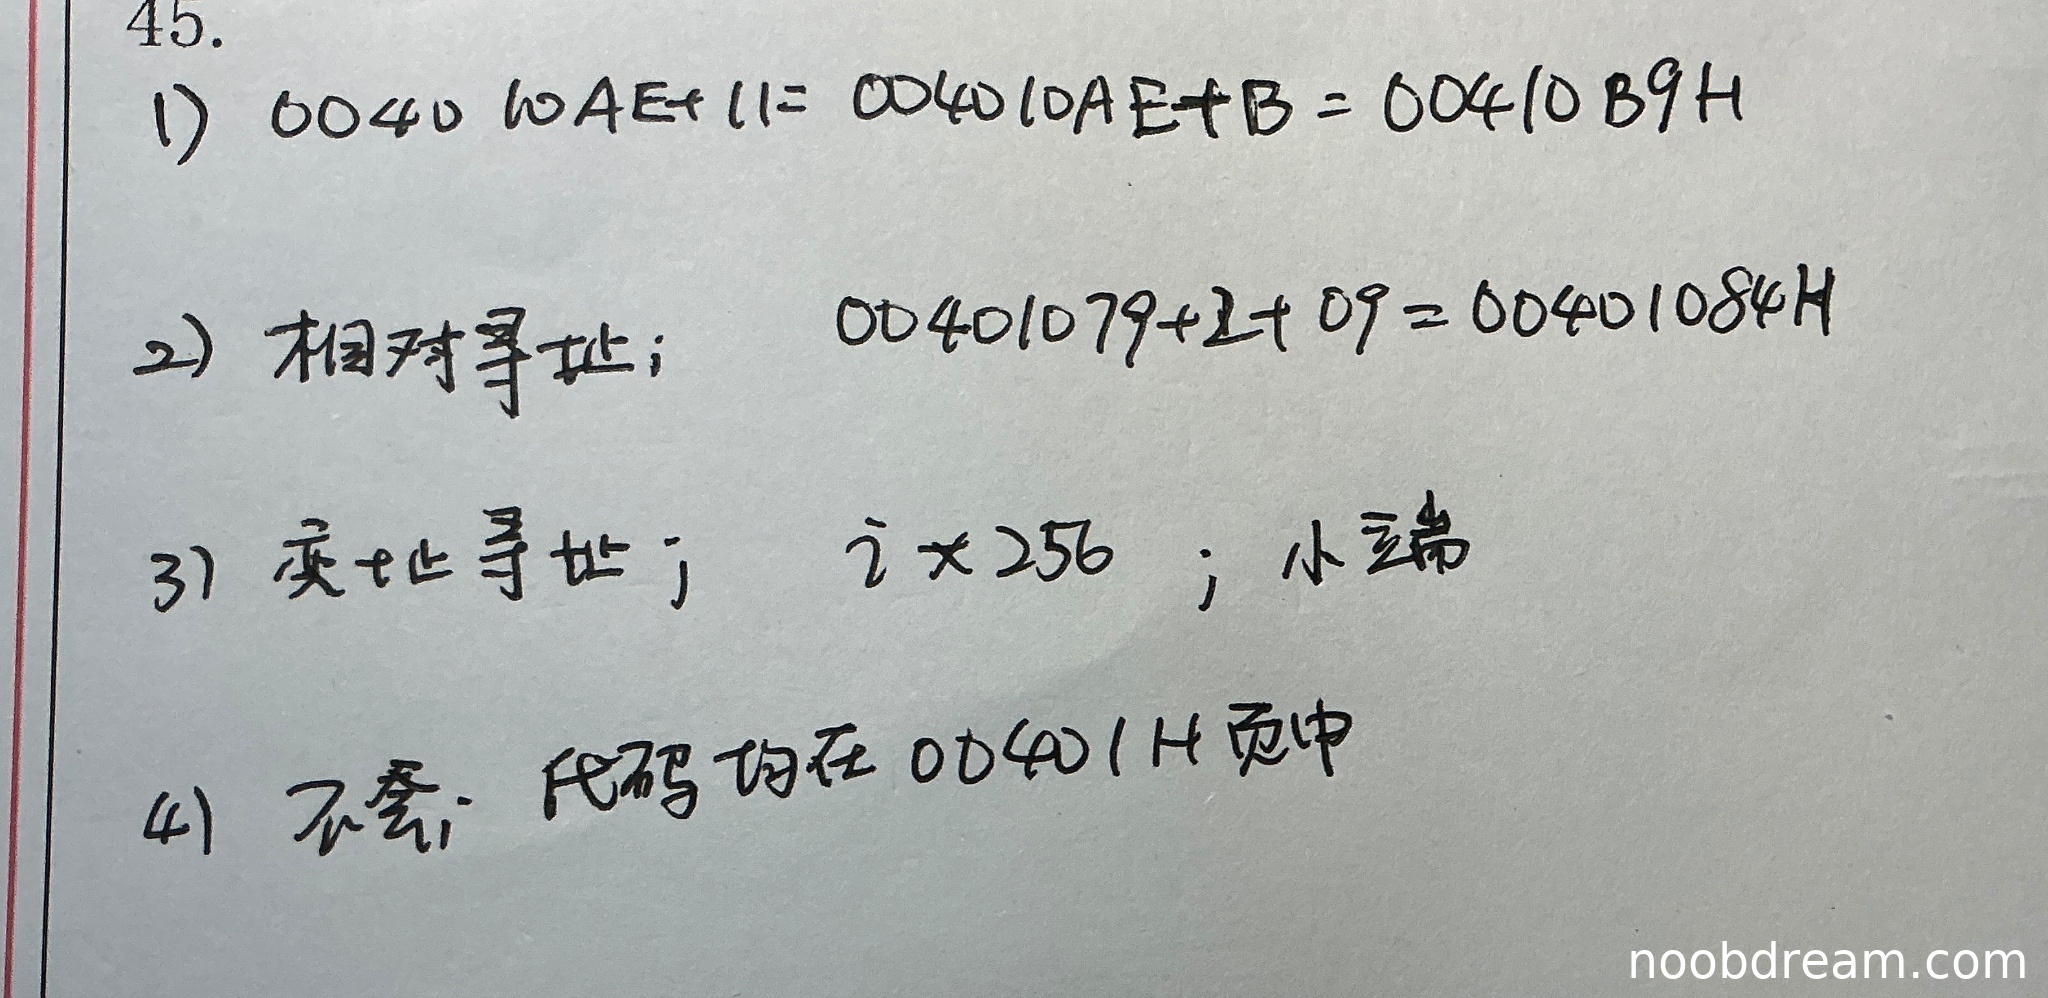 45.
1) 004010AE+11= 004010AE+B = 00410B9H
2) 相对寻址; 00401079+2+09=00401084H
3) 变址寻址; i×256 ; 小端
4) 不会; 代码均在00401H页中
noobdream.com